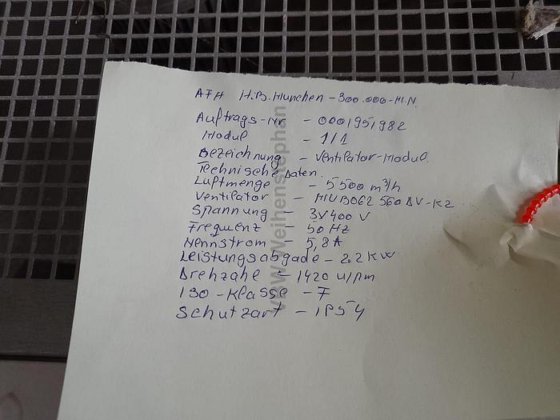 AFA H.B. Munchen - 300.000 - M.N.
Auftrags-Nr - 0001951982
Modul - 1/1
Bezeichnung - Ventilator-Modul
Technische Daten
Luftmenge - 5500 m³/h
Ventilator - MUB062 560 DV-K2
Spannung - 3V400 V
Frequenz - 50 Hz
Nennstrom - 5,8A
Leistungsabgade - 2,2 KW
Drehzahe - 1420 u/pm
ISO-Klasse - F
Schutzart - IP54
www.Weihenstephan